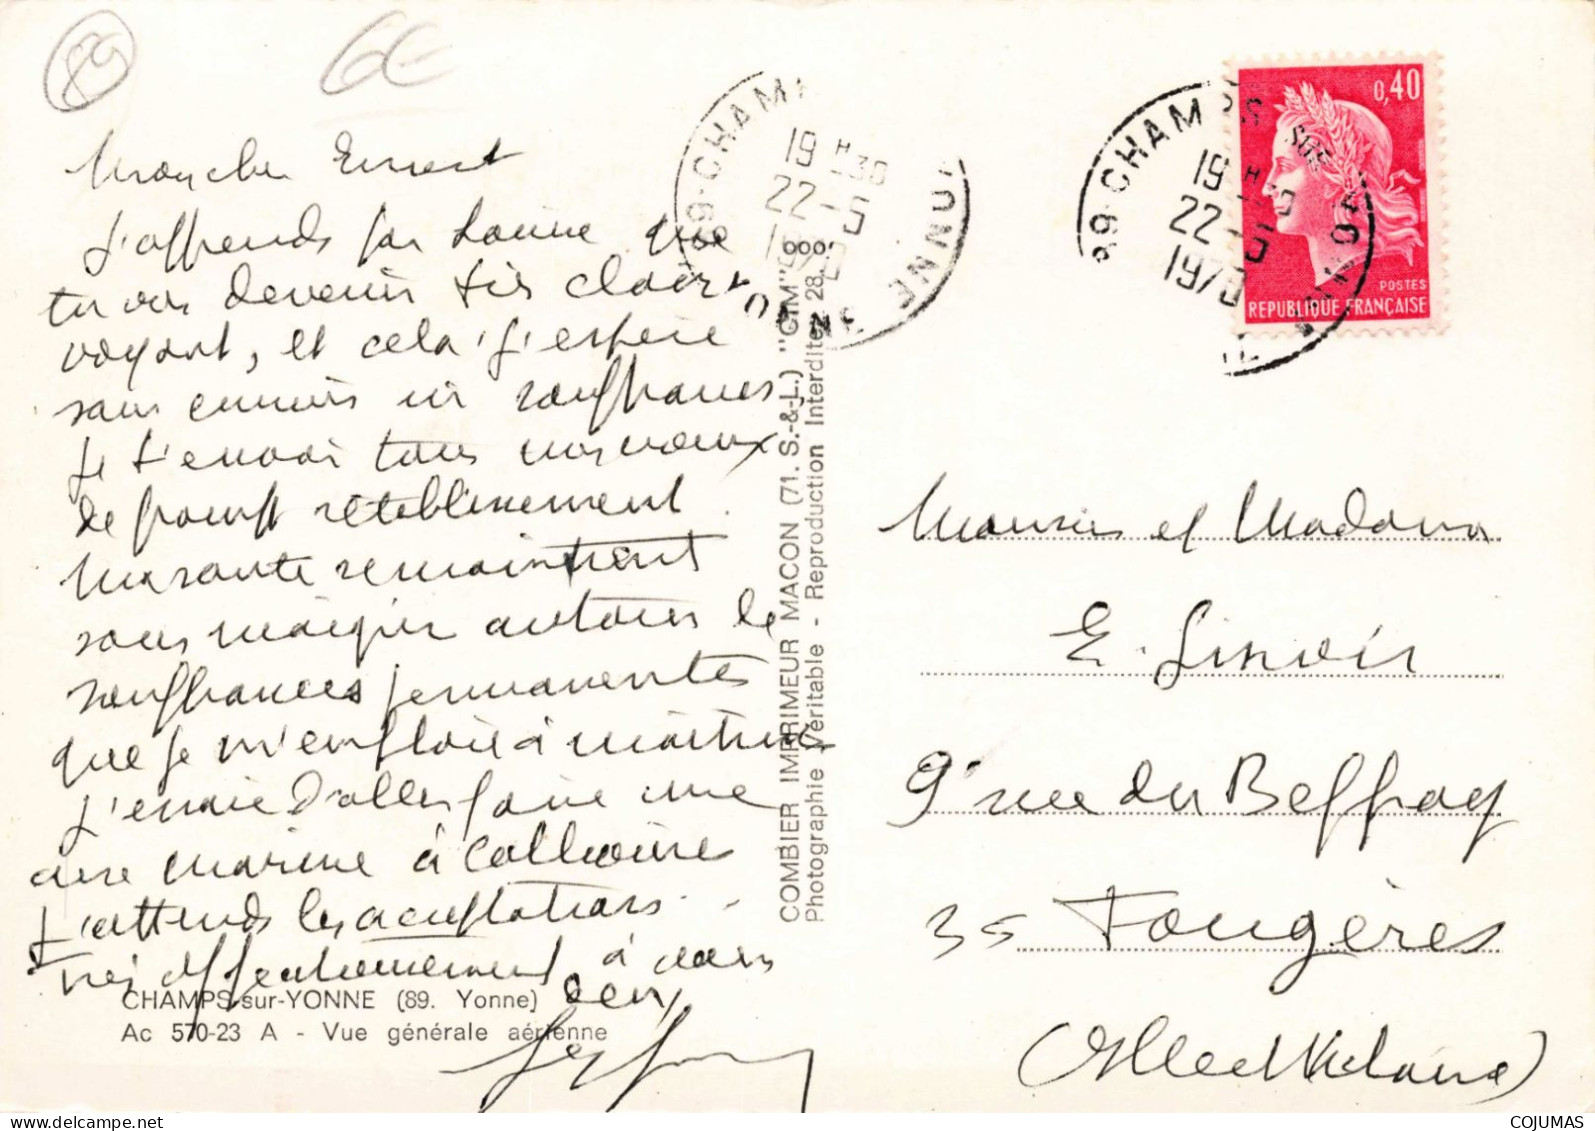 89
6€
Mon cher Ernest
J'apprends par Louise que
tu vas devenir très clair
voyant, et cela j'espère
sans ennuis ni souffrances,
Je t'envoie tous mes vœux
de prompt rétablissement.
Ma santé se maintient
sans maigrir autour de
souffrances permanentes
que je m'emploie à maîtriser
J'envie d'aller faire une
cure marine à Collioure
J'attends les acceptations.
Très affectionnement à vous
deux
CHAMPS-sur-YONNE (89. Yonne)
Ac 570-23 A - Vue générale aérienne
COMBIER IMPRIMEUR MACON (71. S.-&-L.) "CIM"
Photographie Véritable - Reproduction Interdite 28.
89-CHAMPS YONNE
19 H30
22-5
1970
89-CHAMPS SUR YONNE
19 H30
22-5
1970
0,40
POSTES
REPUBLIQUE FRANÇAISE
Monsieur et Madame
E. Genoir
9 rue du Beffroy
35 Fougères
(Ille et Vilaine)
COJUMAS